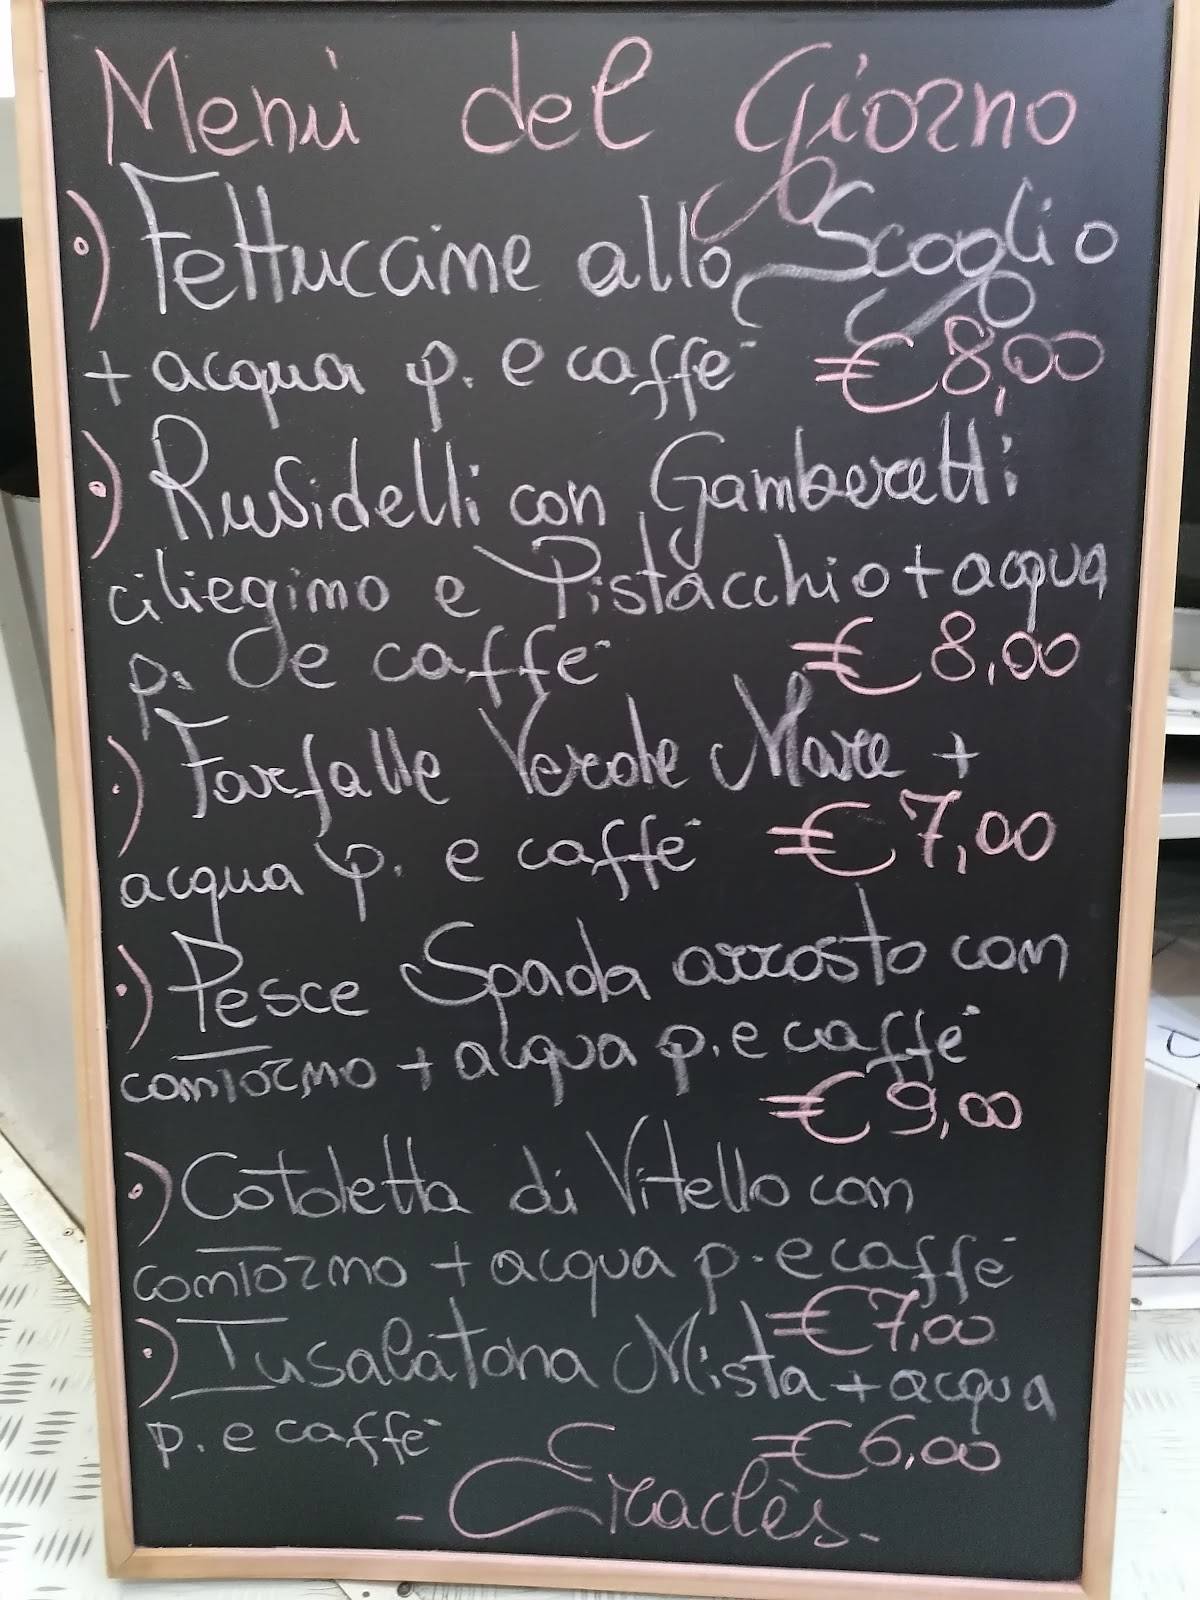 Menù del Giorno
•) Fettuccine allo Scoglio
+ acqua p. e caffè € 8,00
•) Rusidelli con Gamberetti
ciliegino e Pistacchio + acqua
p. e caffè € 8,00
•) Farfalle Verde Mare +
acqua p. e caffè € 7,00
•) Pesce Spada arrosto con
contorno + acqua p. e caffè
€ 9,00
•) Cotoletta di Vitello con
contorno + acqua p. e caffè
€ 7,00
•) Insalatona Mista + acqua
p. e caffè € 6,00
- Eraclès -